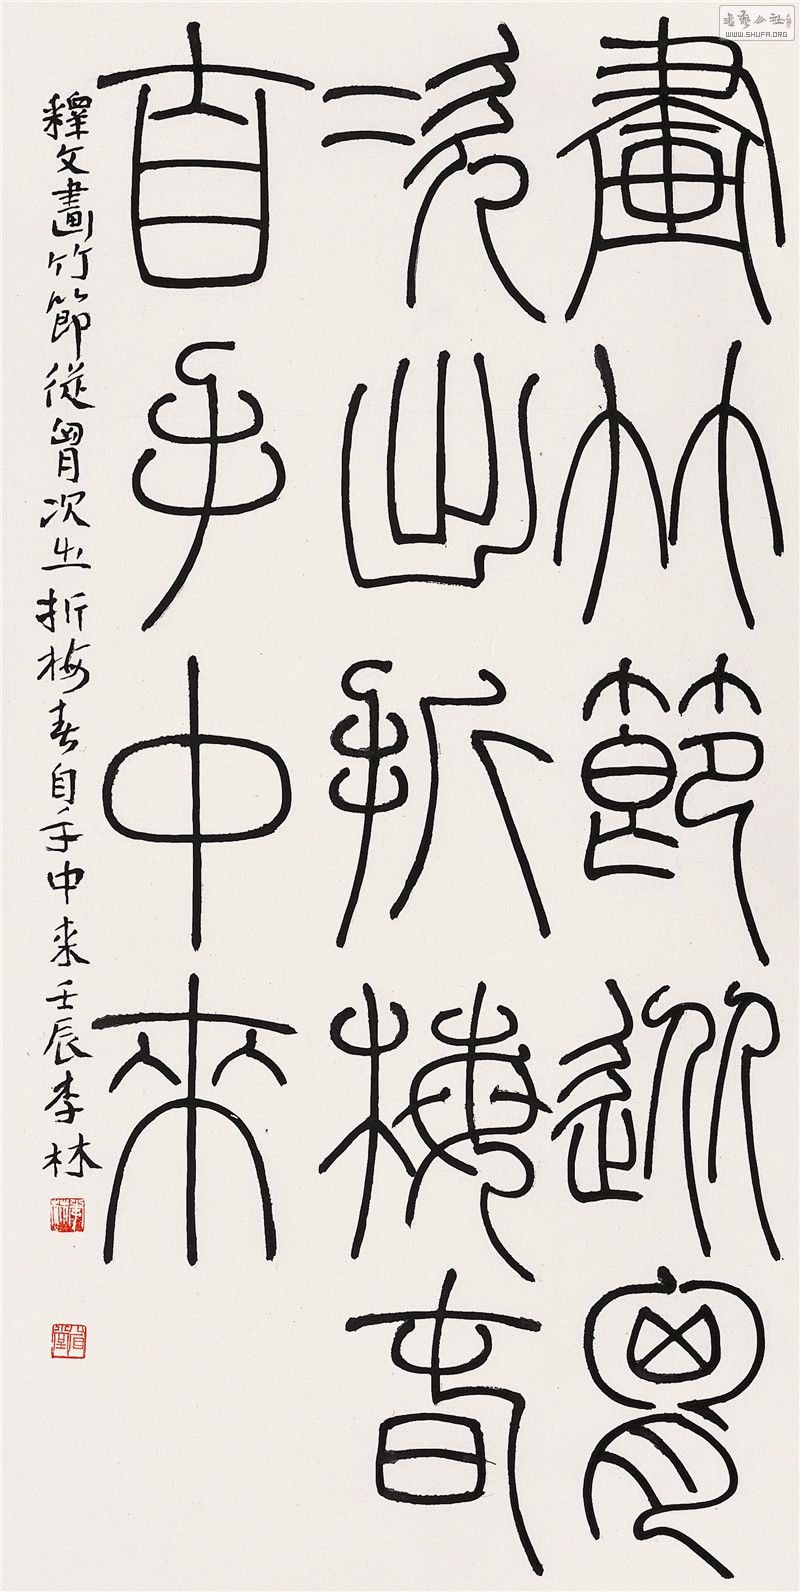 畫竹節從胷
次出折梅春
自手中來
釋文畫竹節從胷次出折梅春自手中來壬辰李林
李林
書藝公社
WWW.SHUFA.ORG